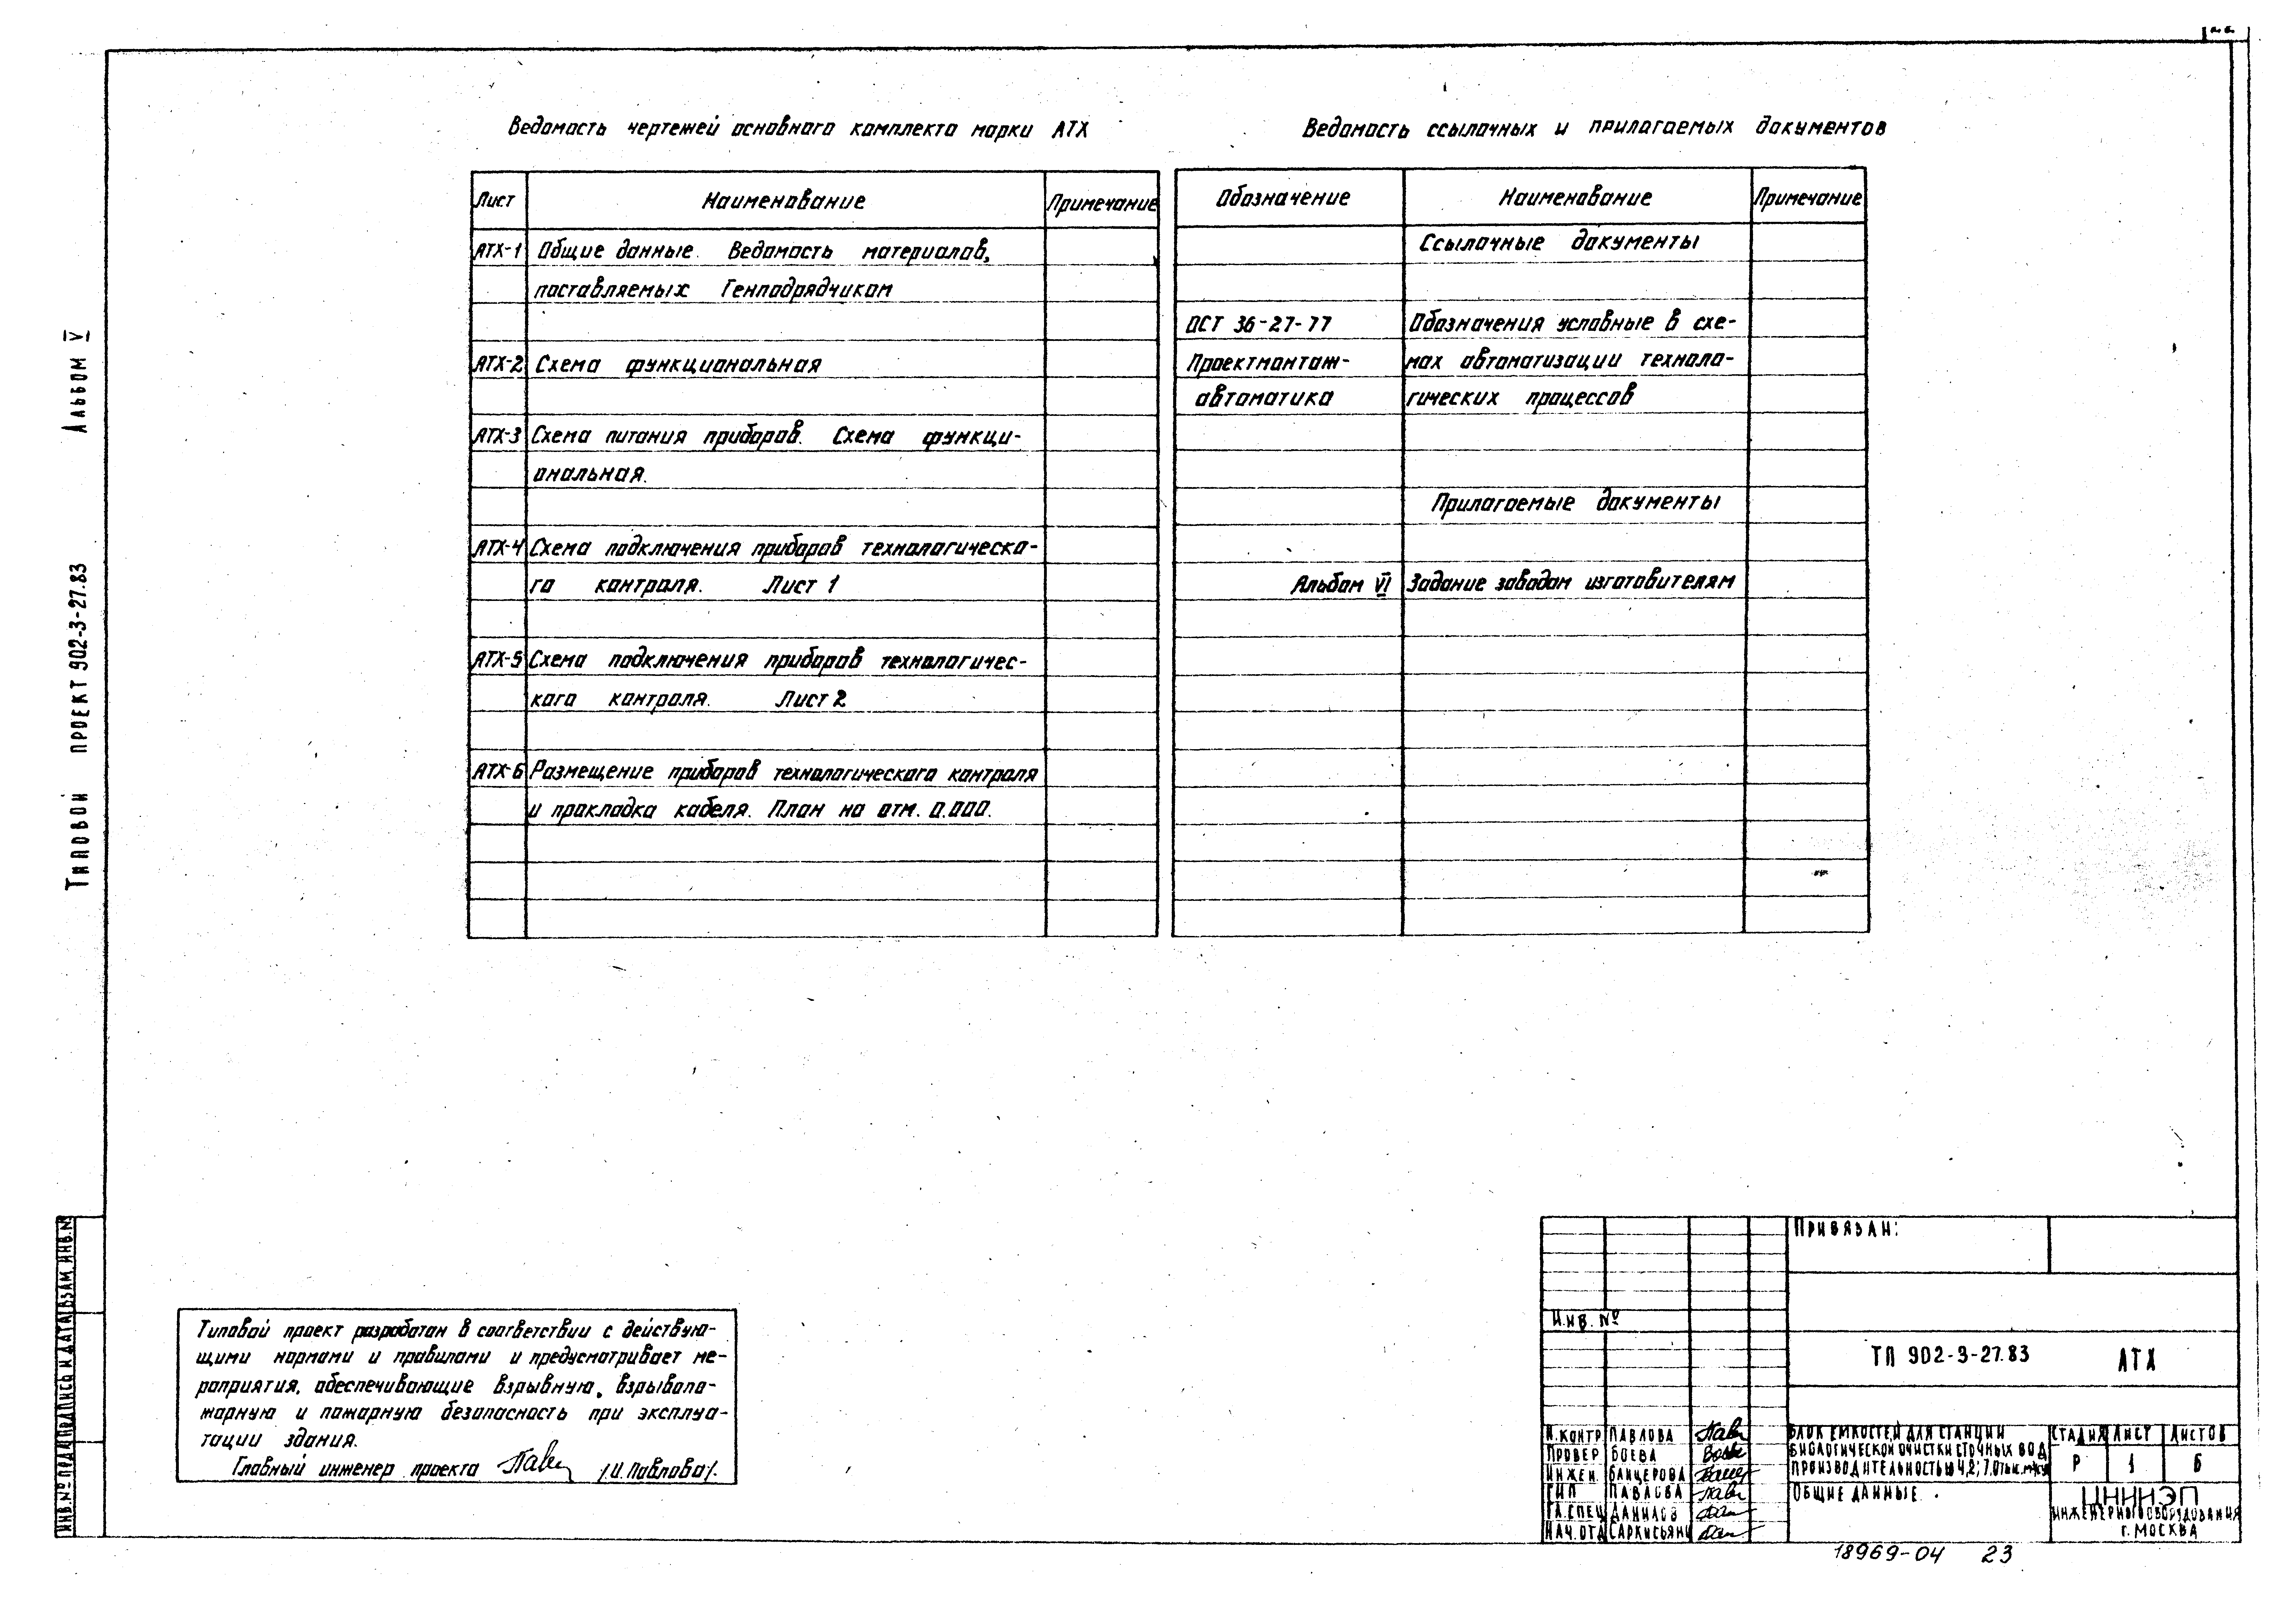 Ведомость чертежей основного комплекта марки АТХ
Лист Наименование Примечание
АТХ-1 Общие данные. Ведомость материалов,
поставляемых Генподрядчиком
АТХ-2 Схема функциональная
АТХ-3 Схема питания приборов. Схема функци-
ональная.
АТХ-4 Схема подключения приборов технологическо-
го контроля. Лист 1
АТХ-5 Схема подключения приборов технологичес-
кого контроля. Лист 2
АТХ-6 Размещение приборов технологического контроля
и прокладка кабеля. План на отм. 0.000.
Ведомость ссылочных и прилагаемых документов
Обозначение Наименование Примечание
Ссылочные документы
ОСТ 36-27-77 Обозначения условные в схе-
Проектмонтаж- мах автоматизации техноло-
автоматика гических процессов
Прилагаемые документы
Альбом VI Задание заводам изготовителям
Альбом V
Типовой проект 902-3-27.83
Инв.№ подл. Подпись и дата Взам.инв.№
Типовой проект разработан в соответствии с действую-
щими нормами и правилами и предусматривает ме-
роприятия, обеспечивающие взрывную, взрывопо-
жарную и пожарную безопасность при эксплуа-
тации здания.
Главный инженер проекта /И.Павлова/.
Привязан:
Инв. №
ТП 902-3-27.83 АТХ
Н.контр Павлова
Провер Боева
Инжен. Банцерова
ГИП Павлова
Гл.спец Данилов
Нач.отд Саркисьянц
Блок емкостей для станции
биологической очистки сточных вод
производительностью 4,2; 7,0 тыс. м³/сут
Стадия Лист Листов
Р 1 6
Общие данные.
ЦНИИЭП
инженерного оборудования
г. Москва
18969-04 23